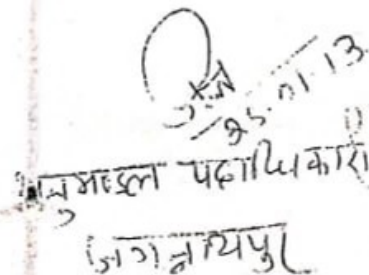 25.01.13
अनुमण्डल पदाधिकारी
जगन्नाथपुर